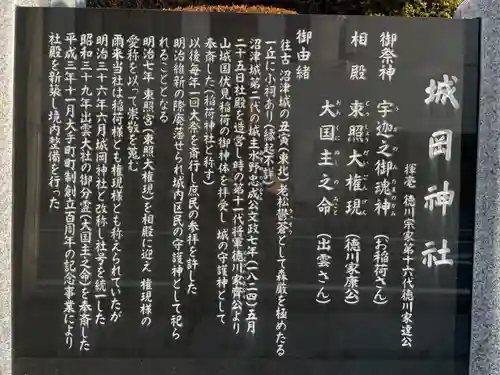 城岡神社
揮毫 徳川宗家第十六代徳川家達公
御祭神 宇迦之御魂神 (お稲荷さん)
相殿 東照大権現 (徳川家康公)
大国主之命 (出雲さん)
御由緒
往古 沼津城の丑寅(東北)老松鬱蒼として森厳を極めたる
一丘に小祠あり(縁起不詳)
沼津城第二代の城主水野忠成公文政七年(一八二四)五月
二十五日社殿を造営し時の第十一代将軍徳川家斉公より
山城国伏見稲荷の御神体を拝受し 城の守護神として
奉斎した(稲荷神社と称す)
以後毎年一回大祭を斎行し庶民の参拝を許した
明治維新の際廃藩せられ城内区民の守護神として祀ら
れることとなる
明治七年 東照宮(東照大権現)を相殿に迎え 権現様の
愛称を以って崇敬を蒐む
雨来当社は稲荷様とも権現様とも称えられていたが
明治三十六年六月城岡神社と改称し社号を統一した
昭和三十九年出雲大社の御分霊(大国主之命)を奉斎した
平成六年十一月大手町町制創立百周年の記念事業により
社殿を新築し境内整備を行った